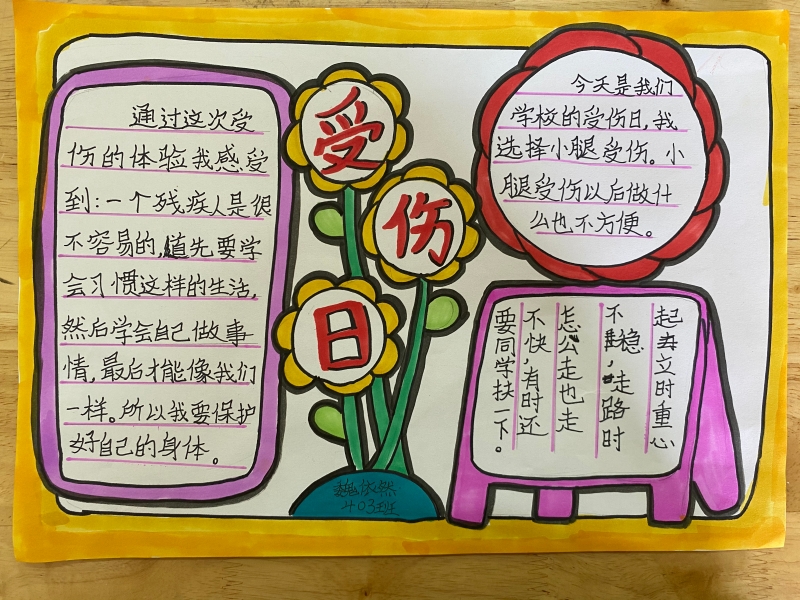 受
伤
日
今天是我们
学校的受伤日,我
选择小腿受伤。小
腿受伤以后做什
么也不方便。
起立时重心
不稳,走路时
怎么走也走
不快,有时还
要同学扶一下。
通过这次受
伤的体验我感受
到:一个残疾人是很
不容易的,首先要学
会习惯这样的生活,
然后学会自己做事
情,最后才能像我们
一样。所以我要保护
好自己的身体。
403班